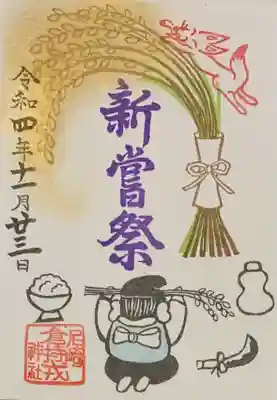 新嘗祭
令和四年十一月廿三日
神社